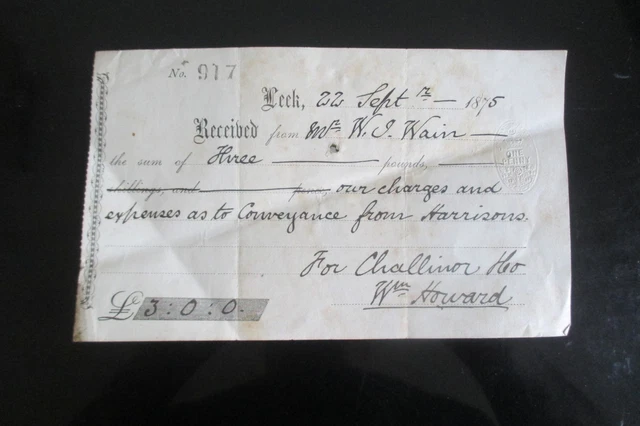 No. 917
Leek, 22 Septr — 1875
Received from Mr W. J. Wain —
the sum of Three — pounds, —
shillings, and — pence, our charges and
expenses as to Conveyance from Harrisons.
For Challinor & Co
Wm Howard
£ 3 : 0 : 0.